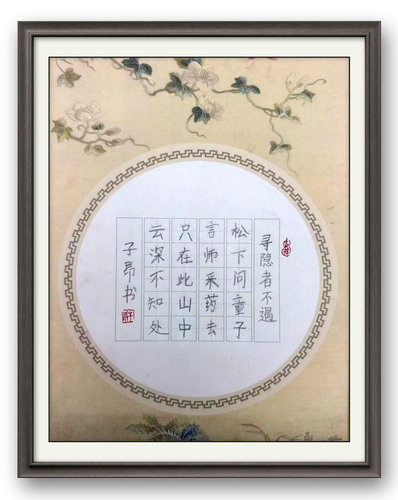 寻隐者不遇
松下问童子
言师采药去
只在此山中
云深不知处
子昂书